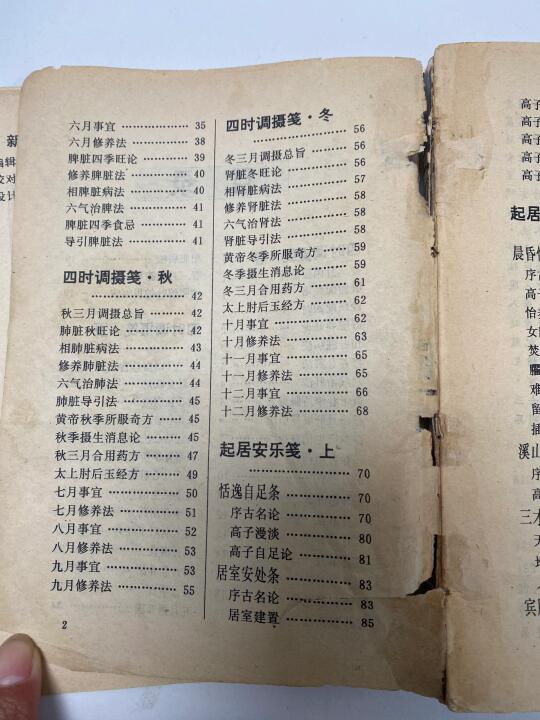 新
编辑
校对
设计
六月事宜 ……………… 35
六月修养法 …………… 38
脾脏四季旺论 ………… 39
修养脾脏法 …………… 40
相脾脏病法 …………… 40
六气治脾法 …………… 41
脾脏四季食忌 ………… 41
导引脾脏法 …………… 41
四时调摄笺·秋
……………… 42
秋三月调摄总旨 ……… 42
肺脏秋旺论 …………… 42
相肺脏病法 …………… 43
修养肺脏法 …………… 44
六气治肺法 …………… 44
肺脏导引法 …………… 45
黄帝秋季所服奇方 …… 45
秋季摄生消息论 ……… 45
秋三月合用药方 ……… 47
太上肘后玉经方 ……… 49
七月事宜 ……………… 50
七月修养法 …………… 51
八月事宜 ……………… 52
八月修养法 …………… 53
九月事宜 ……………… 53
九月修养法 …………… 55
2
四时调摄笺·冬
……………… 56
冬三月调摄总旨 ……… 56
肾脏冬旺论 …………… 57
相肾脏病法 …………… 58
修养肾脏法 …………… 58
六气治肾法 …………… 58
肾脏导引法 …………… 59
黄帝冬季所服奇方 …… 59
冬季摄生消息论 ……… 59
冬三月合用药方 ……… 61
太上肘后玉经方 ……… 62
十月事宜 ……………… 62
十月修养法 …………… 63
十一月事宜 …………… 65
十一月修养法 ………… 65
十二月事宜 …………… 66
十二月修养法 ………… 68
起居安乐笺·上
……………… 70
恬逸自足条 …………… 70
序古名论 …………… 70
高子漫谈 …………… 80
高子自足论 ………… 81
居室安处条 …………… 83
序古名论 …………… 83
居室建置 …………… 85
高子
高子
高子
高子
高子
起居
晨昏
序
高子
怡
女
焚
难
留
插
溪山
序
高
三
宾